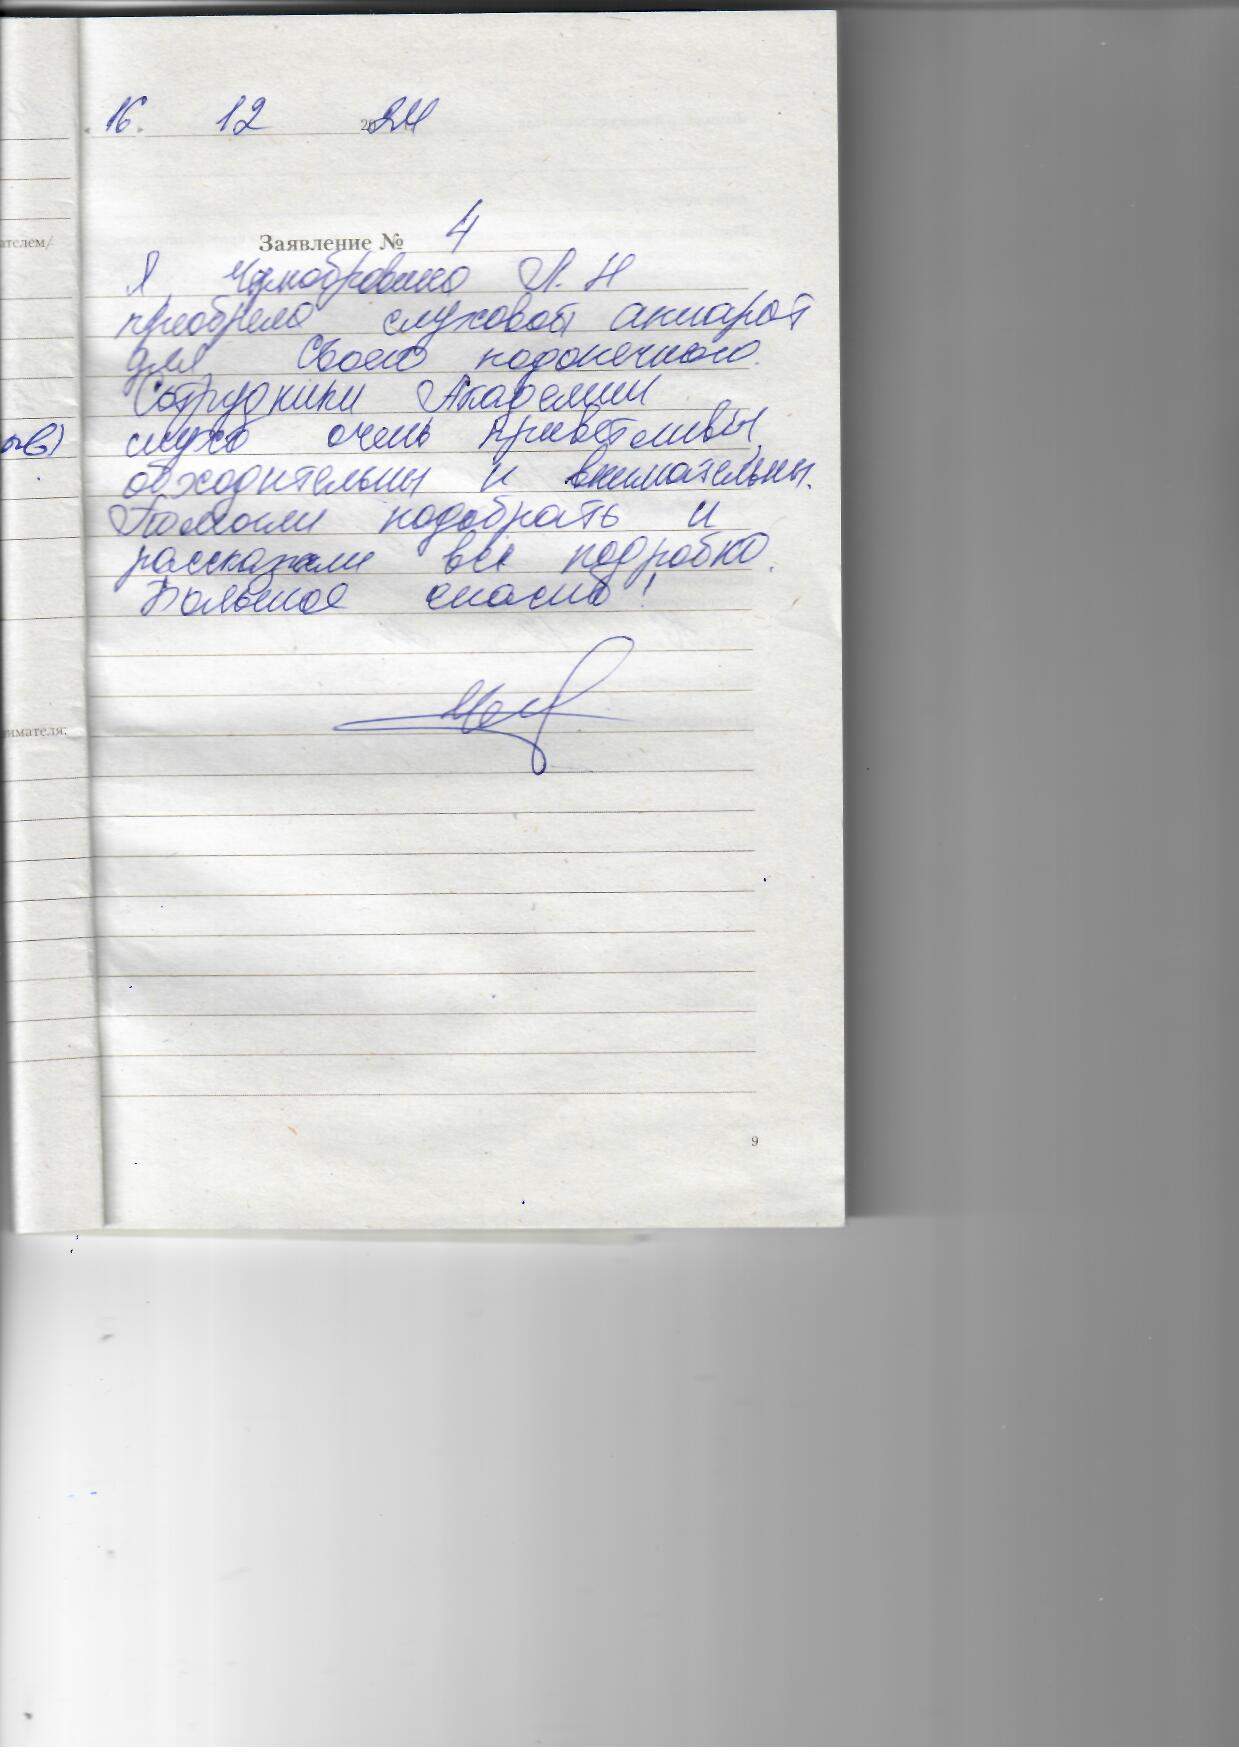 16. 12 2024
ателем/
Заявление № 4
Я, Л. Н
приобрела слуховой аппарат
для своего подопечного.
Сотрудники Академии
слуха очень приветливы,
обходительны и внимательны.
Помогли подобрать и
рассказали все подробно.
Большое спасибо!
нимателя:
9